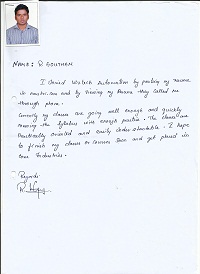 NAME: R GOUTHAM
I Joined Wiztech Automation by posting my resume
in naukri.com and by Viewing my Resume they called me
through phone.
Currently my classes are going well enough and quickly
covering the Syllabus with enough practice. The classes are
Practically oriented and easily understandable. I hope
to finish my classes or courses soon and get placed in
core Industries.
Regards